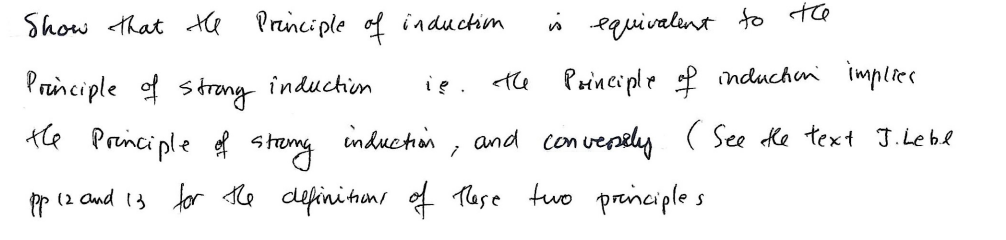 Show that the Principle of induction is equivalent to the
Principle of strong induction i.e. the Principle of induction implies
the Principle of strong induction, and conversely (See the text J.Lebl
pp 12 and 13 for the definitions of these two principles